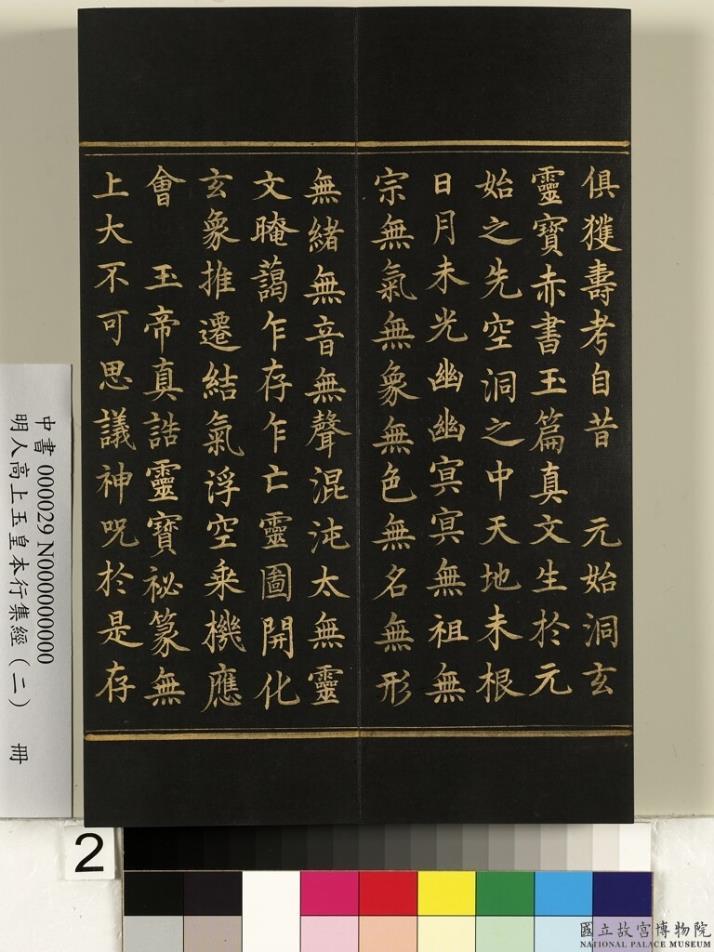 俱獲壽考自昔　元始洞玄
靈寶赤書玉篇真文生於元
始之先空洞之中天地未根
日月未光幽幽冥冥無祖無
宗無氣無象無色無名無形
無緒無音無聲混沌太無靈
文晻藹乍存乍亡靈圖開化
玄象推遷結氣浮空乘機應
會　玉帝真誥靈寶祕篆無
上大不可思議神呪於是存
中書 000029 N000000000
明人高上玉皇本行集經（二）　冊
2
國立故宮博物院
NATIONAL PALACE MUSEUM